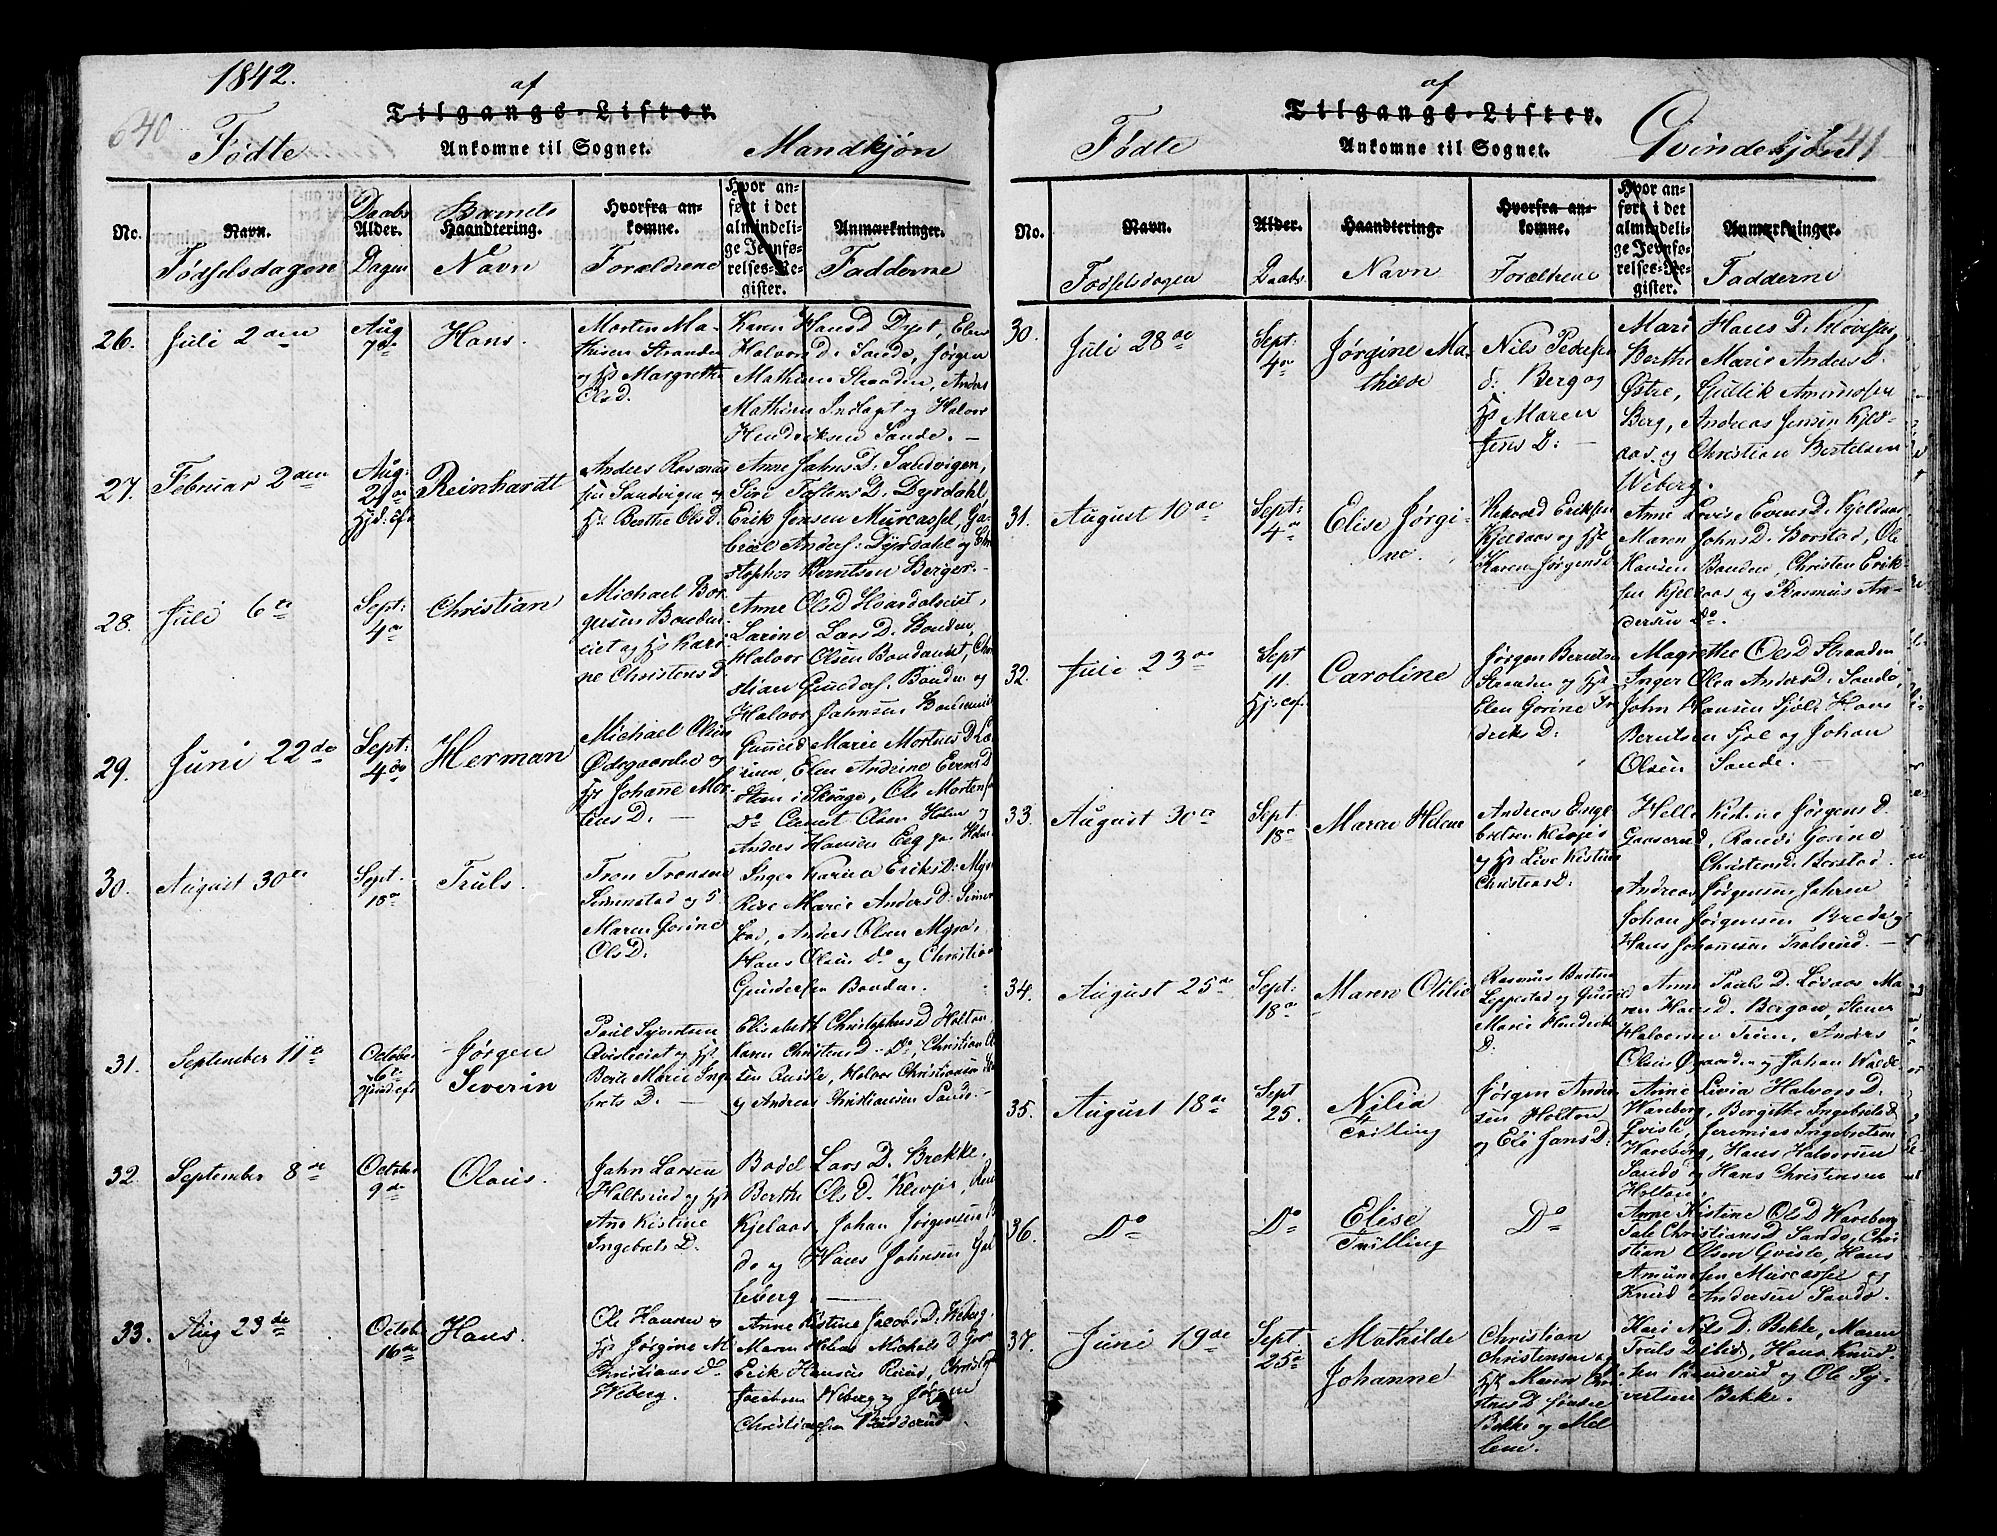 1842.
640
af
Tilgangs-Lister.
Fødte
Ankomne til Sognet.
Mandkjøn
No.
Navn.
Fødselsdagen
Daabs
Alder.
Dagen
Barnets
Haandtering.
Navn
Hvorfra an-
komne.
Forældrene
Hvor an-
ført i det
almindeli-
ge Jevnfø-
relses-Re-
gister.
Anmærkninger.
Fadderne
26.
Juli 2den
Aug
7de
Hans.
Morten Ma-
thisen Stranden
og Margrethe
Ols D.
Karen Hans D Dyst, Elen
Halvors D. Sande, Jørgen
Mathisen Stranden, Anders
Mathisen Indlagt og Halvor
Hendriksen Sande. —
27.
Februar 2den
Aug:
Reinhardt
Anders Rasmus
sen Sandvigen og
Berthe Ols D.
Anne Jahns D. Sandvigen,
Siri Tostens D. Dyrdahl,
Erik Jensen Murcassel, Ga-
briel Anders: Dyrdahl og Chri
stopher Berntsen Berger. —
28.
Juli 6te
Sept:
4de
Christian
Michael Bor
gersen Bonden
eiet og Kari
ne Christens D
Anne Ols D
Larine Lars D. Bonden,
Halvor Olsen Bondeneiet, Chri
stian Gunders. Bonden og
Halvor Jahnsen Bondeneiet
29.
Juni 22de
Sept:
4de
Herman
Michael Olsen
Ødegaarden og
Johanne Mor-
tens D. —
Gunnild Marie Mortens D
Elen Andrine Evens D
Ole Mortens
Do Olsen Holm og
Anders Hansen
30.
August 30te
Sept.
18de
Truls.
Tron Tronsen
Semmestad og
Maren Gorine
Ols D.
Inger Karina Eriks D. Myra
Marie Anders D. Semme
stad, Anders Olsen Myra,
Hans Olsen Do og Christian
Gundersen Bonden.
31.
September 11te
October
6te
Jørgen
Severin
Paul Syvertsen
Qvisteeiet og
Berte Marie Inge
brets D. —
Elisabeth Christophers D Holtan
Karen Christens D Do, Christian Ol
sen Qviste, Halvor Christiansen
og Andreas Christiansen Sande. —
32.
September 8de
October
9de
Olaus.
Jahn Larsen
Holtsrud og
Ane Kistine
Ingebrets D.
Bodel Lars D. Brekke,
Berthe Ols D. Klevjer,
Kjelaas, Johan Jørgensen
do og Hans Johnsen
leberg
33.
Aug 23de
October
16de
Hans.
Ole Hansen og
Jørgine M.
Christians D.
Weberg.
Anne Kistine Jacobs D. Weberg.
Maren Helene Michels D
Erik Hansen Ruud,
Jacobsen Weberg og Jørgen
Christiansen
641
af
Tilgangs-Lister.
Fødte
Ankomne til Sognet.
Qvindekjøn
No.
Navn.
Fødselsdagen
Alder.
Daabs
Haandtering.
Navn
Hvorfra an-
komne.
Forældrene
Hvor an-
ført i det
almindeli-
ge Jevnfø-
relses-Re-
gister.
Anmærkninger.
Fadderne
30.
Juli 28de
Sept:
4de
Jørgine Ma-
thilde
Nils Pedersen
Berg og
Maren
Jens D: —
Mari Hans D. Kløvfjes,
Berthe Marie Anders D.
Østre, Gullik Amundsen
Berg, Andreas Jensen Kjeld-
aas, og Christian Bertelsen
Weberg.
31.
August 10de
Sept:
4de
Elise Jørgi-
ne.
Eriksen
Kjeldaas og
Karen Jørgens D
Anne Lovise Evens D. Kjeldaas
Maren Johns D. Borstad, Ole
Hansen Bonden, Christen Erik-
sen Kjeldaas og Rasmus An-
dersen Do.
32.
Juli 23de
Sept
11.
Caroline
Jørgen Berntsen
Stranden og
Elen Gorine
driks D.
Magrethe Ols D Stranden
Inger Olea Anders D. Sande,
John Hansen Fjøle Hans
Berntsen Fjøl og Johan
Olsen Sande. —
33.
August 30te
Sept.
18de
Maren Helene
Andreas Engel
bretsen Klevjer
og Live Kistine
Christens D.
Helle Kistine Jørgens D.
Gaaserud, Randi Gorine
Christens D. Borstad.
Andreas Jørgensen Jahren
Johan Jørgensen Brede og
Hans Johannesen Trolsrud. —
34.
August 25de
Sept:
18de
Maren Otilie
Rasmus
Leppestad og Gunnild
Marie Hendriks
D.
Anne Poals D. Løvaas Ma
ren Hans D. Bergan,
Halvorsen Teien, Anders
Olsen og Johan
35.
August 18de
Sept
25.
Nilia
Tvilling
Jørgen Ander
sen Holtan
og Eli Jans D.
Anne Livia Halvors D.
Hareberg, Bergithe Ingebrets D
Qviste, Jeremias Ingebretsen
Hareberg, Hans Halvorsen
Sande og Hans Christensen
Holtan.
36.
Do
Do
Elise
Tvilling
Do
Anne Kistine Ols D Hareberg
Tale Christians D Sande, Chri
stian Olsen Qviste, Hans
Amundsen Murcassel og
Knud Andersen Sande.
37.
Juni 19de
Sept
25de
Mathilde
Johanne
Christian
Christensen og
Maren Chri
stens D
Bekke og Mel
lem.
Kari Nils D. Bekke, Maren
Truls D. Hans Knud-
sen og Ole Sy-
vertsen Bekke.